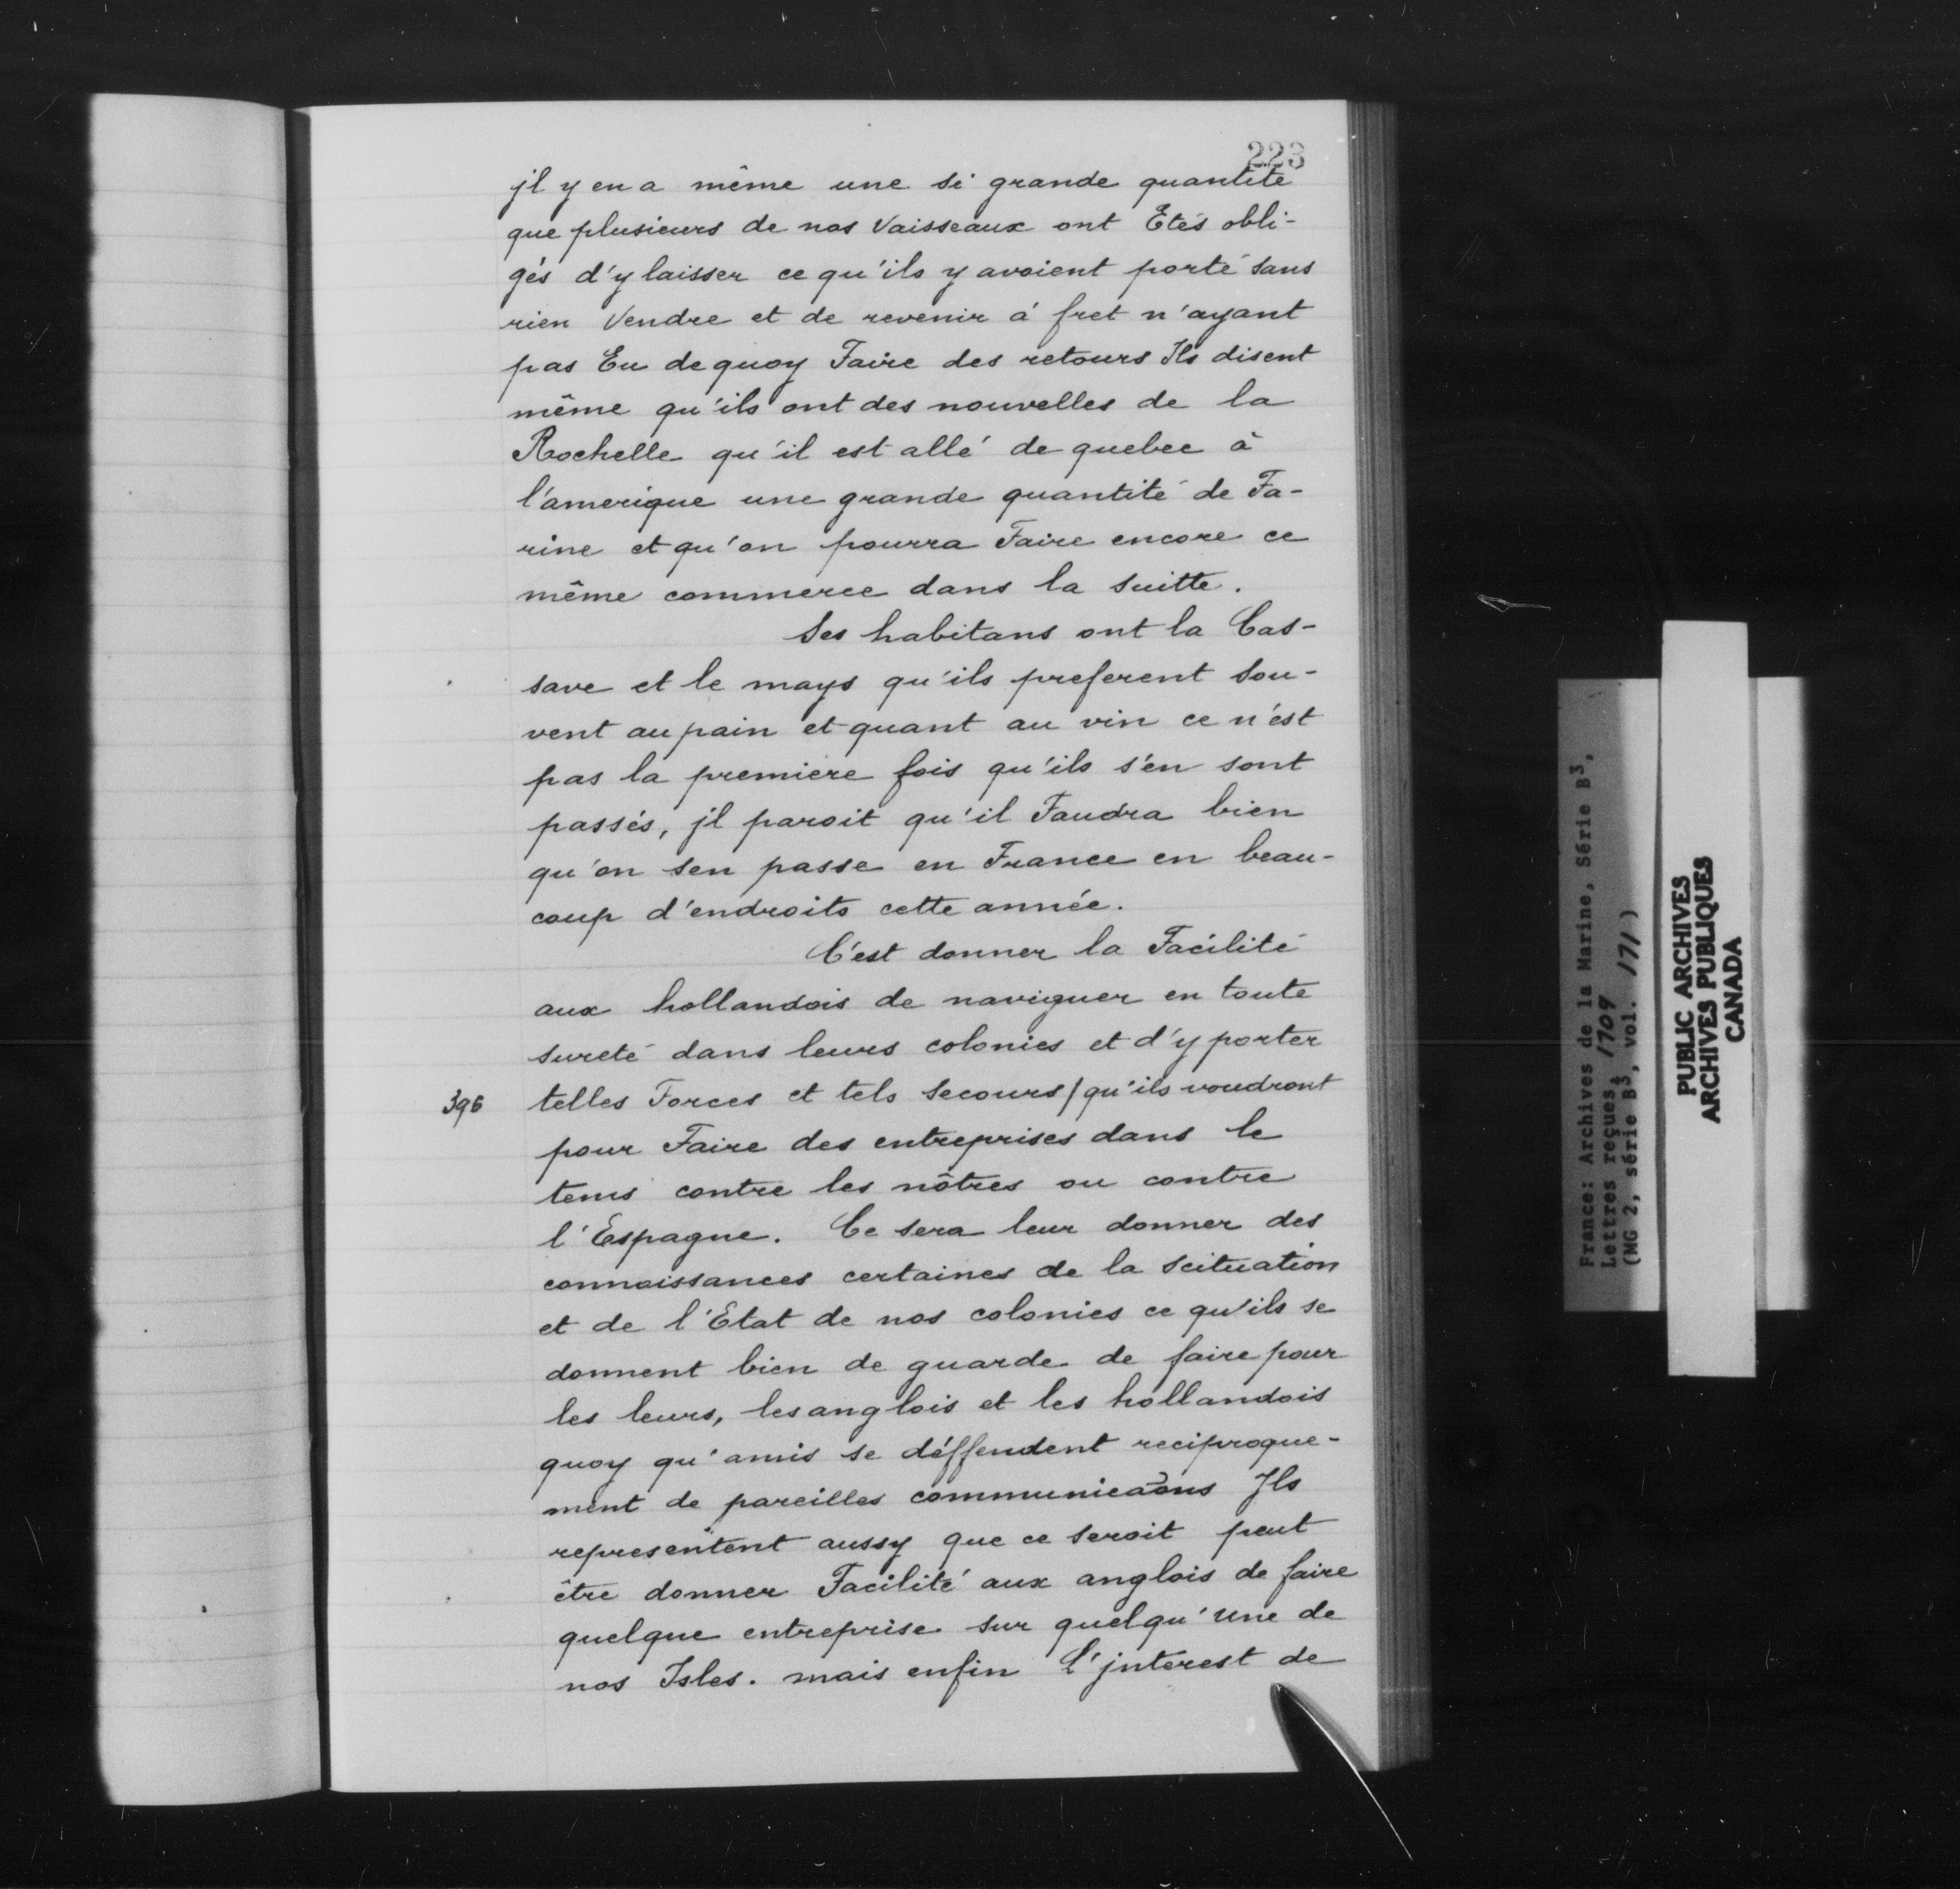 223
jl y en a même une si grande quantité
que plusieurs de nos Vaisseaux ont Etés obli-
gés d'y laisser ce qu'ils y avoient porté sans
rien Vendre et de revenir à fret n'ayant
pas Eu de quoy Faire des retours Ils disent
même qu'ils ont des nouvelles de la
Rochelle qu'il est allé de quebec à
l'amerique une grande quantité de Fa-
rine et qu'on pourra Faire encore ce
même commerce dans la suitte.
Ses habitans ont la Cas-
save et le mays qu'ils preferent sou-
vent au pain et quant au vin ce n'est
pas la premiere fois qu'ils s'en sont
passés, jl paroit qu'il Faudra bien
qu'on sen passe en France en beau-
coup d'endroits cette année.
C'est donner la Facilité
aux hollandois de naviguer en toute
sureté dans leurs colonies et d'y porter
396 telles Forces et tels secours / qu'ils voudront
pour Faire des entreprises dans le
tems contre les nôtres ou contre
l'Espagne. Ce sera leur donner des
connoissances certaines de la scituation
et de l'Etat de nos colonies ce qu'ils se
donnent bien de guarde de faire pour
les leurs, les anglois et les hollandois
quoy qu'amis se déffendent reciproque-
ment de pareilles communicaõns Jls
representent aussy que ce seroit peut
être donner Facilité aux anglois de faire
quelque entreprise sur quelqu'une de
nos Isles. mais enfin L'jnterest de
France: Archives de la Marine, Série B3,
Lettres reçues, 1709
(MG 2, série B3, vol. 171)
PUBLIC ARCHIVES
ARCHIVES PUBLIQUES
CANADA